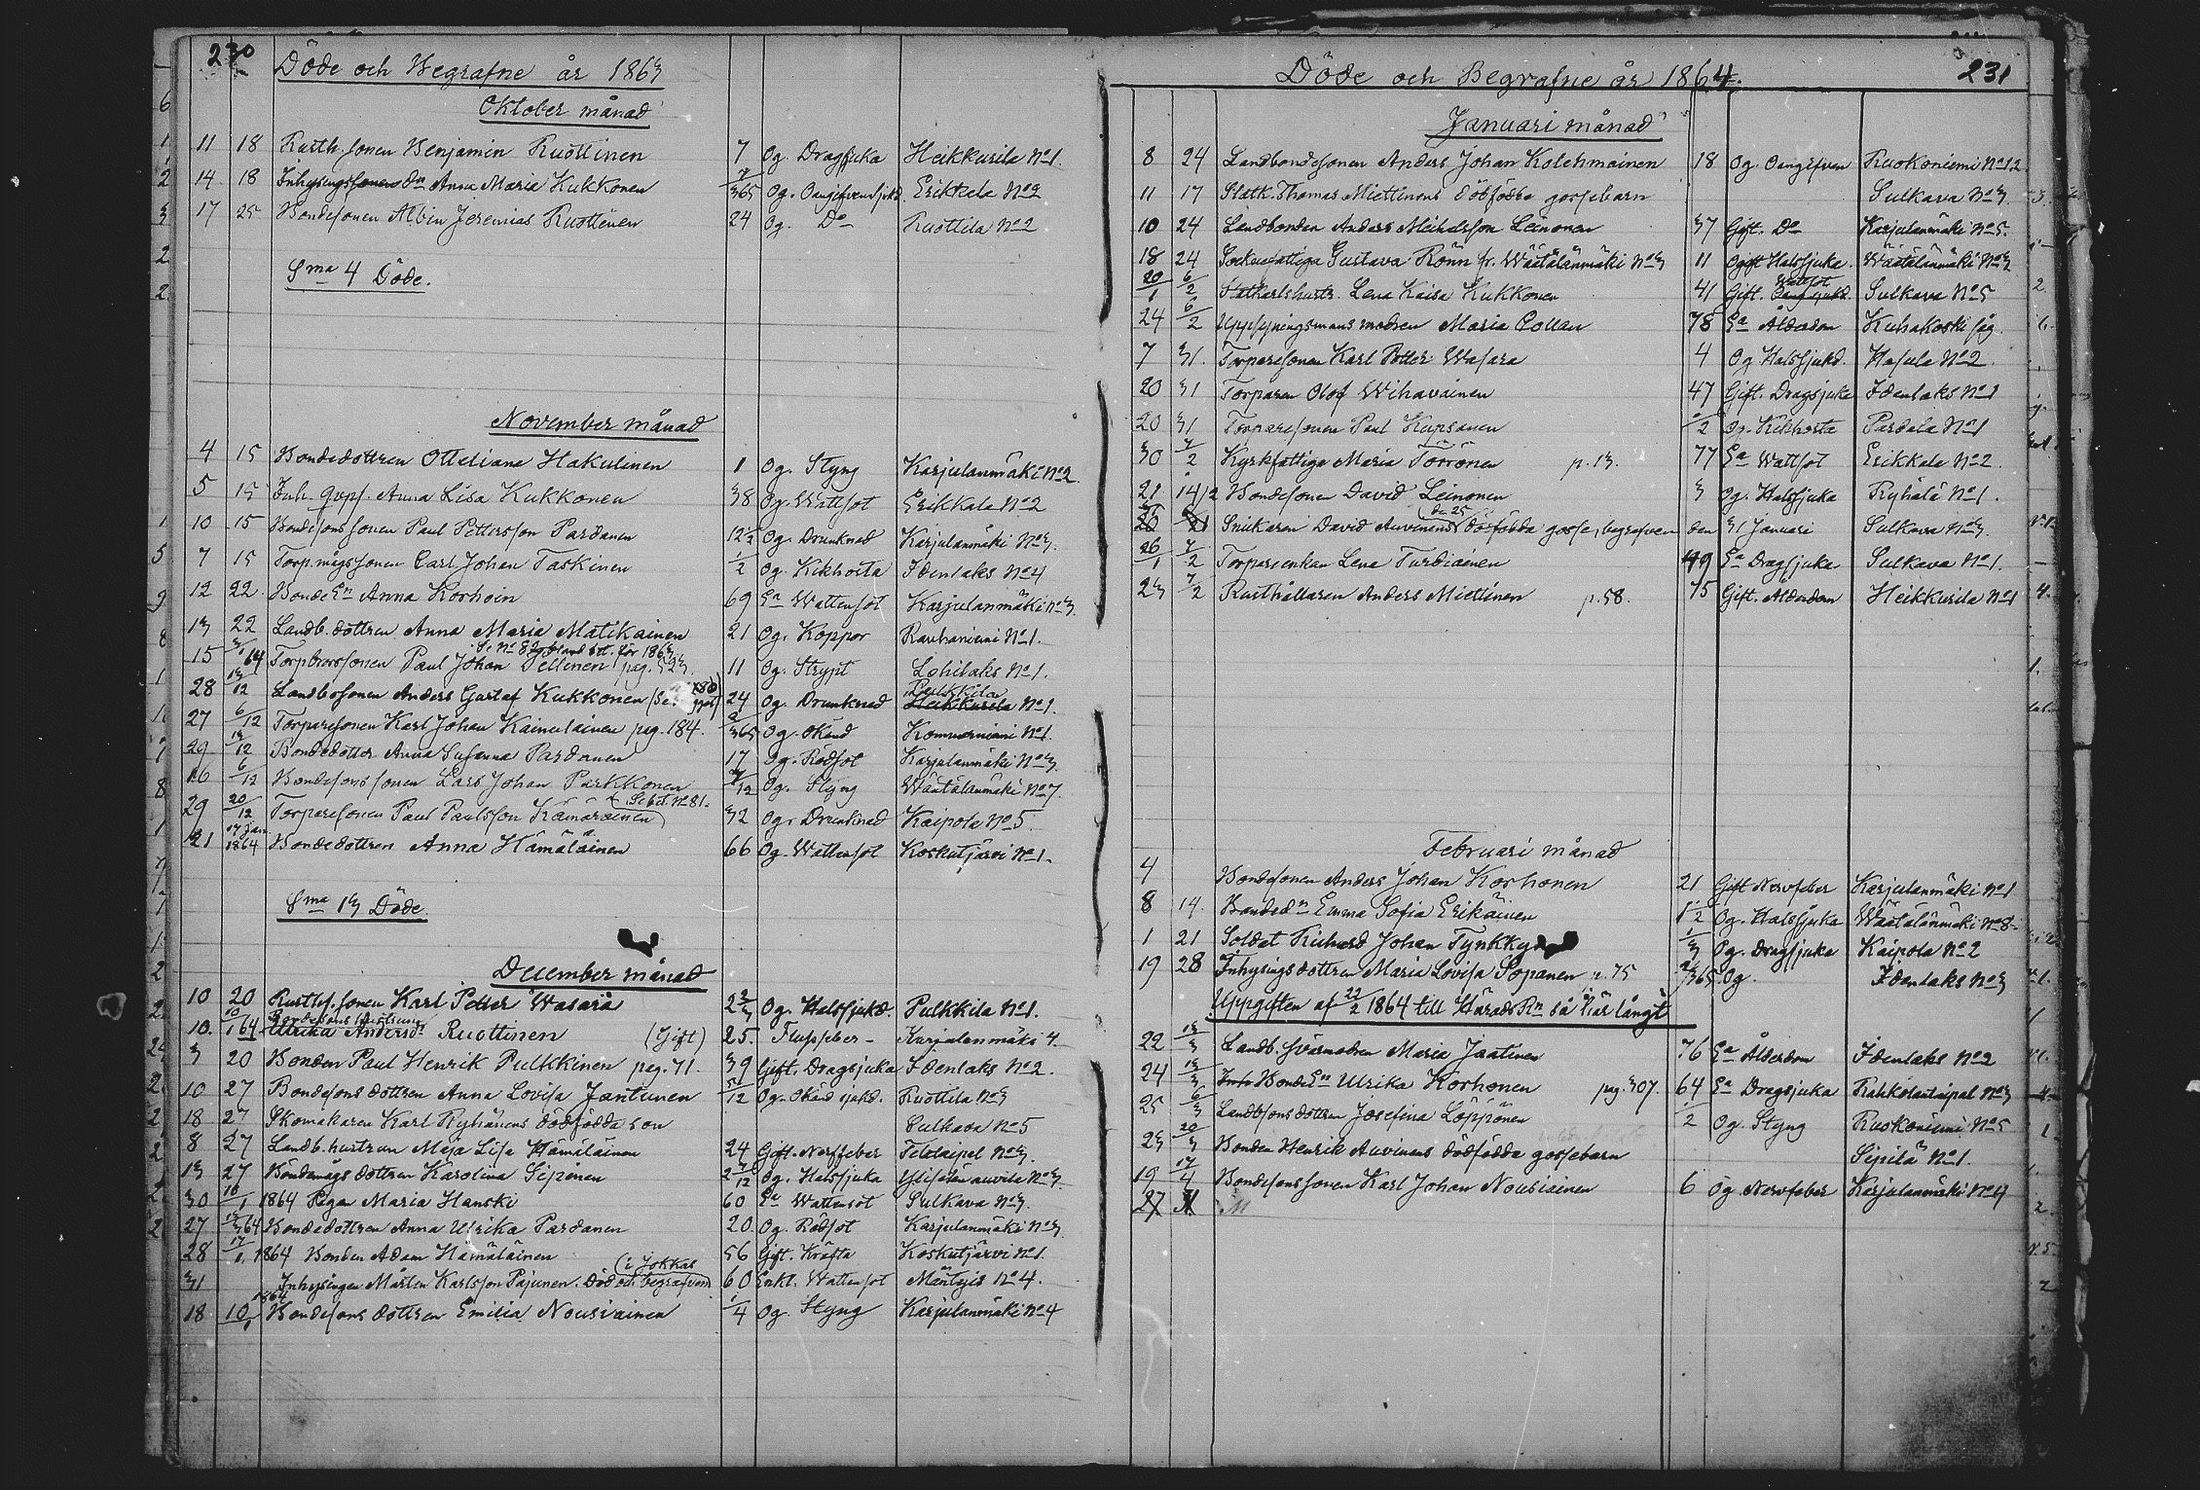 230
Döde och Begrafne år 1863
Oktober månad
11 18 Rusth. sonen Benjamin Ruottinen 7 Og. Dragsjuka Heikkurila No 1.
14 18 Inhysings sonens dn Anna Maria Kukkonen 7/365 Og. Oangifven sjukd. Erikkala No 2
17 25 Bondesonen Albin Jeremias Ruottinen 24 Og. Do Ruottila No 2
Sma 4 Döde.
November månad
4 15 Bondedottren Otteliana Hakulinen 1 Og. Styng Karjulanmäki No 2
5 15 Inh. qvps. Anna Lisa Kukkonen 38 Og. Wattsot Erikkala No 2
10 15 Bondesons sonen Paul Pettersson Pardanen 12 1/2 Og. Drunknad Karjulanmäki No 3.
7 15 Torp.mågs sonen Carl Johan Taskinen 1/2 Og. Kikhosta Idenlaks No 4
12 22 Bonde En Anna Korhoin 69 Ea Wattensot Karjulanmäki No 3.
13 22 Landb. dottren Anna Maria Matikainen 21 Og. Koppor Rauhaniemi No 1.
15 3/1 64 Torpbrorsonen Paul Johan Pellinen pag. 523 11 Og. Strypt Lohilaks No 1.
28 13/12 Landbosonen Anders Gustaf Kukkonen 24 Og. Drunknad Pulkkila Heikkurila No 1.
27 6/12 Torparesonen Karl Johan Kainulainen pag. 184. 2/365 Og. Okänd Kommerniemi No 1.
29 13/12 Bondedotter Anna Susanna Pardanen 17 Og. Rödsot Karjulanmäki No 3.
16 6/12 Bondesons sonen Lars Johan Parkkonen 7/12 Og. Styng Wäätälänmäki No 7.
29 20/12 Torparesonen Paul Paulsson Kämäräinen Sebet. No 81. 32 Og. Drunknad Kaipola No 5
21 17 Jan 1864 Bondedottren Anna Hämäläinen 66 Og. Wattensot Koskutjärvi No 1.
Sma 13 Döde.
December månad
10 20 Rusth.s. sonen Karl Petter Wasara 2 2/3 Og. Halssjukd. Pulkkila No 1.
10. 10/1 64 Bondesons hustrun Ulrika Andersdr Ruottinen (Gift) 25. Flussfeber - Karjulanmäki 4.
3 20 Bonden Paul Henrik Pulkkinen pag. 71. 39 Gift. Dragsjuka Idenlaks No 2.
10 27 Bondesons dottren Anna Lovisa Jantunen 5/12 Og. Okänd sjukd. Ruottila No 3
18 27 Skomakaren Karl Ryhänens dödfödda son Sulkava No 5
8 27 Landb. hustrun Maja Lisa Hämäläinen 24 Gift. Nervfeber Telataipel No 3.
13 27 Bondemågs dottren Karolina Sipinen 2 7/12 Og. Halssjuka No 3.
30 10/1 1864 Pigan Maria Hanski 60 Ea Wattensot Sulkava No 3.
27 17/1 64 Bondedottren Anna Ulrika Pardanen 20 Og. Rödsot Karjulanmäki No 3
28 17/1 1864 Bonden Adam Hämäläinen 56 Gift. Kräfta Koskutjärvi No 1.
31 Inhysingen Mårten Karlsson Pajunen. Död och begrafven (i Jokkas) 60 Enkl. Wattensot Mäntyis No 4.
18 10/1 1864 Bondesons dottren Emilia Nousiainen 1/4 Og. Styng Karjulanmäki No 4
231
Döde och Begrafne år 1864.
Januari månad
8 24 Landbondesonen Anders Johan Kolehmainen 18 Og. Oangifven Ruokoniemi No 12
11 17 Statk. Thomas Miettinens dödfödda gossebarn Sulkava No 3.
10 24 Landbonden Anders Michelsson Leinonen 37 Gift. Do Karjulanmäki No 5.
18 24 Sockenfattiga Gustava Rönn fr. Wäätälänmäki No 3 11 Ogift Halssjuka. Wäätälänmäki No 3
20/1 6/2 Statkarlshustr. Lena Kaisa Kukkonen 41 Gift. Wattsot Sulkava No 5
24 6/2 Uppsyningsmans modren Maria Collan 78 Ea Ålderdom Kuhakoski såg.
7 31. Torparesonen Karl Petter Wasara 4 Og Halssjukd. Hasula No 2.
20 31 Torparen Olof Wihavainen 47 Gift. Dragsjuka Idenlaks No 1
20 31 Torparesonen Paul Kupsanen 1/2 Og. Kikhosta Pardala No 1
30 7/2 Kyrkfattiga Maria Törrönen p. 13. 77 Ea Wattsot Erikkala No 2.
21 14/2 Bondesonen David Leinonen 3 Og. Halssjuka Ryhälä No 1.
Snikaren David Auvinens den 25 dödfödda gosse, begrafven den 31 Januari Sulkava No 3.
26/1 7/2 Torpareenkan Lena Turdiainen 49 Ea Dragsjuka Sulkava No 1.
23 7/2 Rusthållaren Anders Miettinen p. 58. 75 Gift. Ålderdom Heikkurila No 1
Februari månad
4 Bondesonen Anders Johan Korhonen 21 Gift Nervfeber Karjulanmäki No 1
8 14. Bonded.n Emma Sofia Erikäinen 1 1/2 Og. Halssjuka Wäätälänmäki No 8.
1 21 Soldat Richard Johan Tynkky 1/3 Og. Dragsjuka Kaipola No 2
19 28 Inhysings dottren Maria Lovisa Sopanen p. 75 /365 Og. Idenlaks No 3
Uppgiften af 22/2 1864 till Härads Rn så här långt
22 13/3 Landb. svärmodren Maria Jaatinen 76 Ea Ålderdom Idenlaks No 2
24 13/3 Inh Bonde En Ulrika Korhonen pag. 307. 64 Ea Dragsjuka Rahkolantaipal No 3
25 6/3 Landbsons dottren Josefina Löppönen 1/2 Og. Styng Ruokoniemi No 5
23 20/3 Bonden Henrik Auvinens dödfödda gossebarn Sipilä No 1.
19 17/4 Bondesons sonen Karl Johan Nousiainen 6 Og. Nervfeber Karjulanmäki No 4
27 M